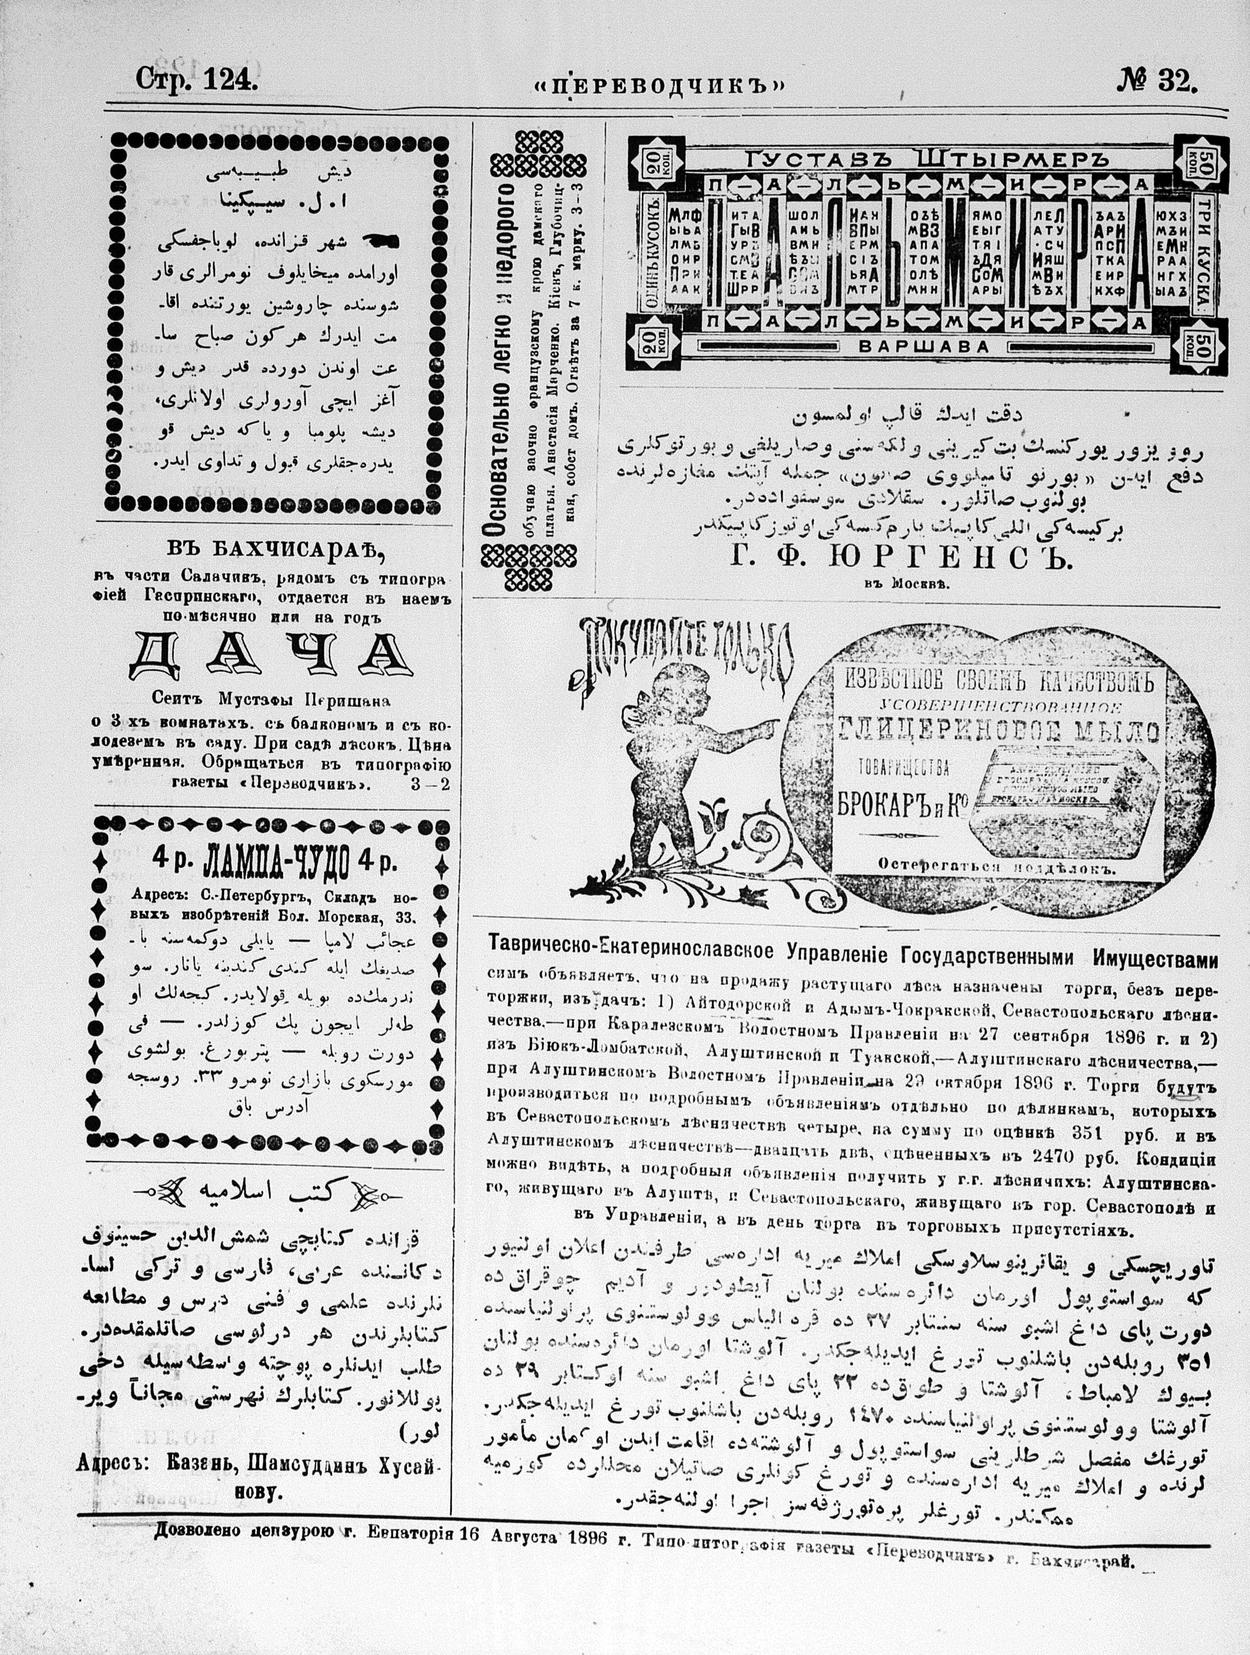 Стр. 124.
«ПЕРЕВОДЧИКЪ»
№ 32.
ديش طبيبه‌سى
ا. ل. سيپكينا
شهر قزانده، لوباچفسكى
اورامده ميخايلوف نومرالرى قار
شوسنده چاروشين يورتنده اقا-
مت ايدرك هر كون صباح سا-
عت اوندن دورده قدر ديش و
آغز ايچى آورولرى اولانلرى،
ديشه پلومبا و ياكه ديش قو
يدره‌جقلرى قبول و تداوى ايدر.
ВЪ БАХЧИСАРАѢ,
въ части Салачикъ, рядомъ съ типогра
фіей Гаспринскаго, отдается въ наемъ
по-мѣсячно или на годъ
ДАЧА
Сеитъ Мустафы Перишана
о 3 хъ комнатахъ. съ балкономъ и съ ко-
лодеземъ въ саду. При садѣ лѣсокъ. Цѣна
умѣренная. Обращаться въ типографію
газеты «Переводчикъ». 3—2
4 р. ЛАМПА-ЧУДО 4 р.
Адресъ: С.-Петербургъ, Складъ но-
выхъ изобрѣтеній Бол. Морская, 33.
عجائب لامپا — يايلى دوكمه‌سنه با-
صديغك ايله كندى كندينه يانار. سو
ندرمك‌ده بويله قولايدر. كيجه‌لك او
طه‌لر ايچون پك كوزلدر. — فى
دورت روبله — پتربورغ. بولشوى
مورسكوى بازارى نومرو ٣٣. روسجه
آدرس باق
كتب اسلاميه
قزانده كتابچى شمش الدين حسينوف
دكاننده عربى، فارسى و تركى لسا-
نلرنده علمى و فنى درس و مطالعه
كتابلرندن هر درلوسى صاتلمقده‌در.
طلب ايدنلره پوچته واسطه‌سيله دخى
يوللانور. كتابلرك فهرستى مجاناً وير-
لور)
Адресъ: Казань, Шамсуддинъ Хусаи-
нову.
Основательно легко и недорого
обучаю заочно французскому крою дамскаго
платья. Анастасія Марченко. Кіевъ, Глубочиц-
кая, собст домъ. Отвѣтъ за 7 к. марку. 3—3
ГУСТАВЪ ШТЫРМЕРЪ
20 коп.
50 коп.
ПАЛЬМИРА
ОДИНЪ КУСОКЪ
ПАЛЬМИРА
ТРИ КУСКА
ПАЛЬМИРА
20 коп.
ВАРШАВА
50 коп
دقت ايدك قالپ اولمسون
دفع ايدن «بورنو تاميلووى صابون» جمله آپتك مغازه‌لرنده
بولنوب صاتلور.
بركيسه‌كى اللى كاپيك يارم كيسه‌كى اوتوز كاپيكدر
Г. Ф. ЮРГЕНСЪ.
въ Москвѣ.
ПОКУПАЙТЕ ТОЛЬКО
ИЗВѢСТНОЕ СВОИМЪ КАЧЕСТВОМЪ
УСОВЕРШЕНСТВОВАННОЕ
ГЛИЦЕРИНОВОЕ МЫЛО
ТОВАРИЩЕСТВА
БРОКАРЪ и Ко
Остерегаться поддѣлокъ.
Таврическо-Екатеринославское Управленіе Государственными Имуществами
симъ объявляетъ, что на продажу растущаго лѣса назначены торги, безъ пере-
торжки, изъ дачъ: 1) Айтодорской и Адымъ-Чокракской, Севастопольскаго лѣсни-
чества,—при Каралезскомъ Волостномъ Правленіи на 27 сентября 1896 г. и 2)
изъ Біюкъ-Ломбатской, Алуштинской и Туакской,—Алуштинскаго лѣсничества,—
при Алуштинскомъ Волостномъ Правленіи на 29 октября 1896 г. Торги будутъ
производиться по подробнымъ объявленіямъ отдѣльно по дѣлянкамъ, которыхъ
въ Севастопольскомъ лѣсничествѣ четыре, на сумму по оцѣнкѣ 351 руб. и въ
Алуштинскомъ лѣсничествѣ—двадцать двѣ, оцѣненныхъ въ 2470 руб. Кондиціи
можно видѣть, а подробныя объявленія получить у г.г. лѣсничихъ: Алуштинска-
го, живущаго въ Алуштѣ, и Севастопольскаго, живущаго въ гор. Севастополѣ и
въ Управленіи, а въ день торга въ торговыхъ присутстіяхъ.
تاوريچسكى و يقاترينوسلاوسكى املاك ميريه اداره‌سى طرفندن اعلان اولنيور
كه سواستوپول اورمان دائره‌سنده بولنان آيطودور و آديم چوقراق ده
دورت پاى داغ اشبو سنه سنتابر ٢٧ ده قره الياس وولوستنوى پراولنياسنده
٣٥١ روبله‌دن باشلنوب تورغ ايديله‌جكدر. آلوشتا اورمان دائره‌سنده بولنان
بيوك لامباط، آلوشتا و طواق‌ده ٢٢ پاى داغ اشبو سنه اوكتابر ٢٩ ده
آلوشتا وولوستنوى پراولنياسنده ١٤٧٠ روبله‌دن باشلنوب تورغ ايديله‌جكدر.
تورغك مفصل شرطلرينى سواستوپول و آلوشته‌ده اقامت ايدن اورمان مأمور
لرنده و املاك ميريه اداره‌سنده و تورغ كونلرى صاتيلان محللرده كورميه
ممكندر. تورغلر پره‌تورژقه‌سز اجرا اولنه‌جقدر.
Дозволено цензурою г. Евпаторія 16 Августа 1896 г. Типо-литографія газеты «Переводчикъ» г. Бахчисарай.